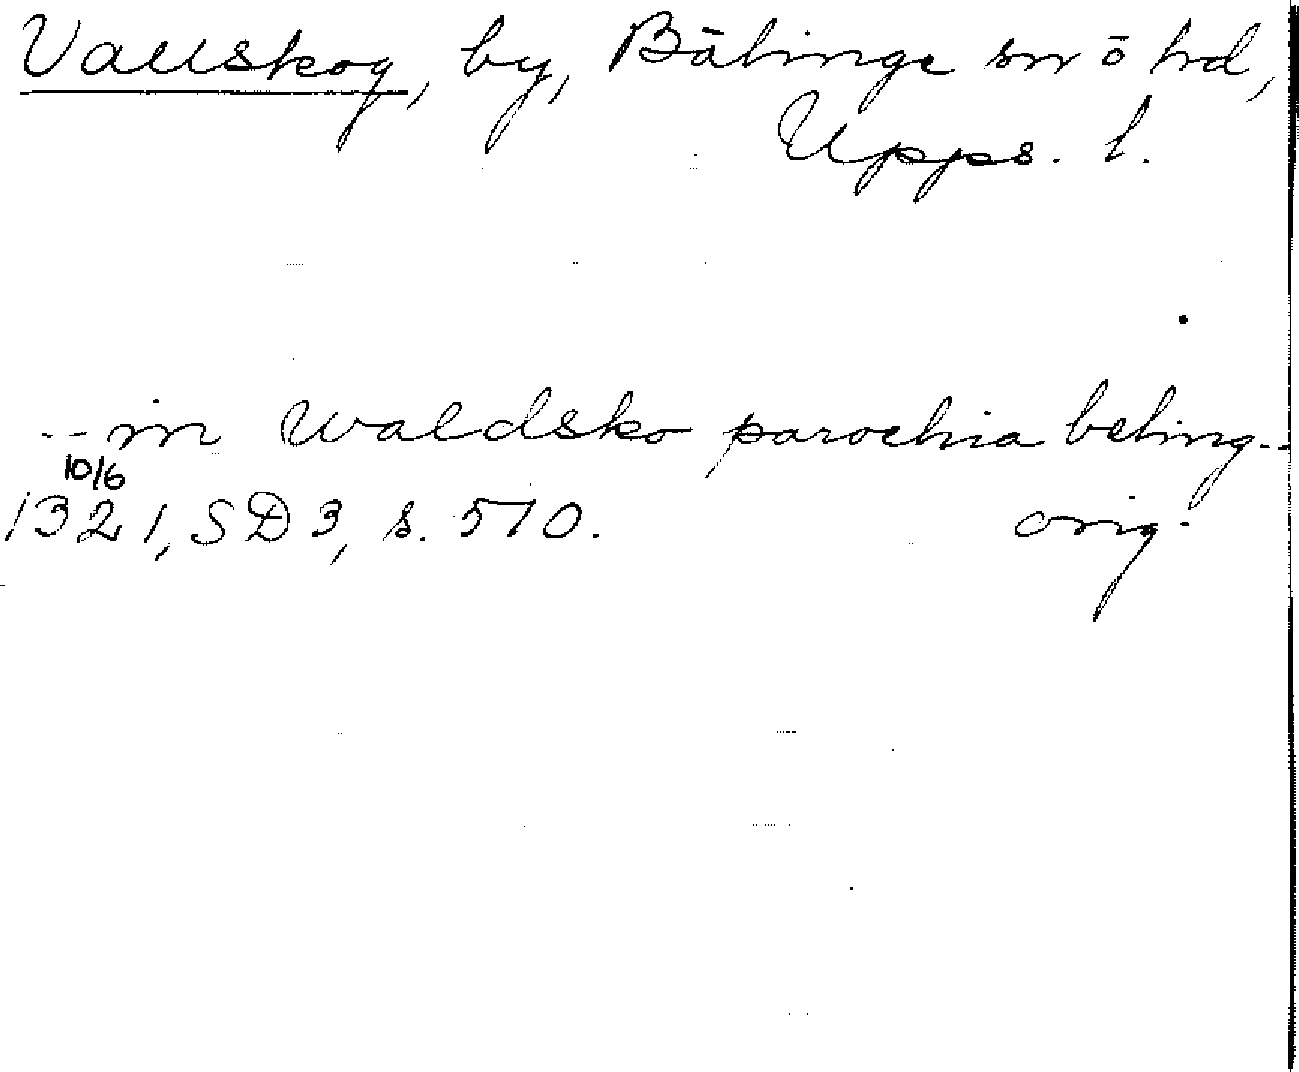 Vallskog, by, Bälinge sn o hd,
Upps. l.
-- in Waldsko parochia beling--
10/6
1321, SD 3, s. 510. orig.